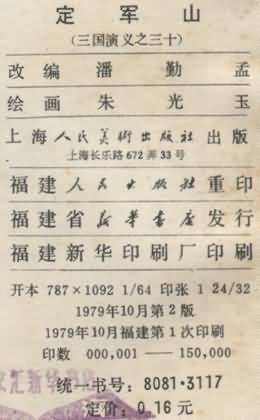 定军山
(三国演义之三十)
改编 潘勤孟
绘画 朱光玉
上海人民美術出版社出版
上海长乐路672弄33号
福建人民出版社重印
福建省新华書店发行
福建新华印刷厂印刷
开本 787×1092 1/64 印张 1 24/32
1979年10月第2版
1979年10月福建第1次印刷
印数 000,001——150,000
统一书号：8081·3117
定价：0.16元